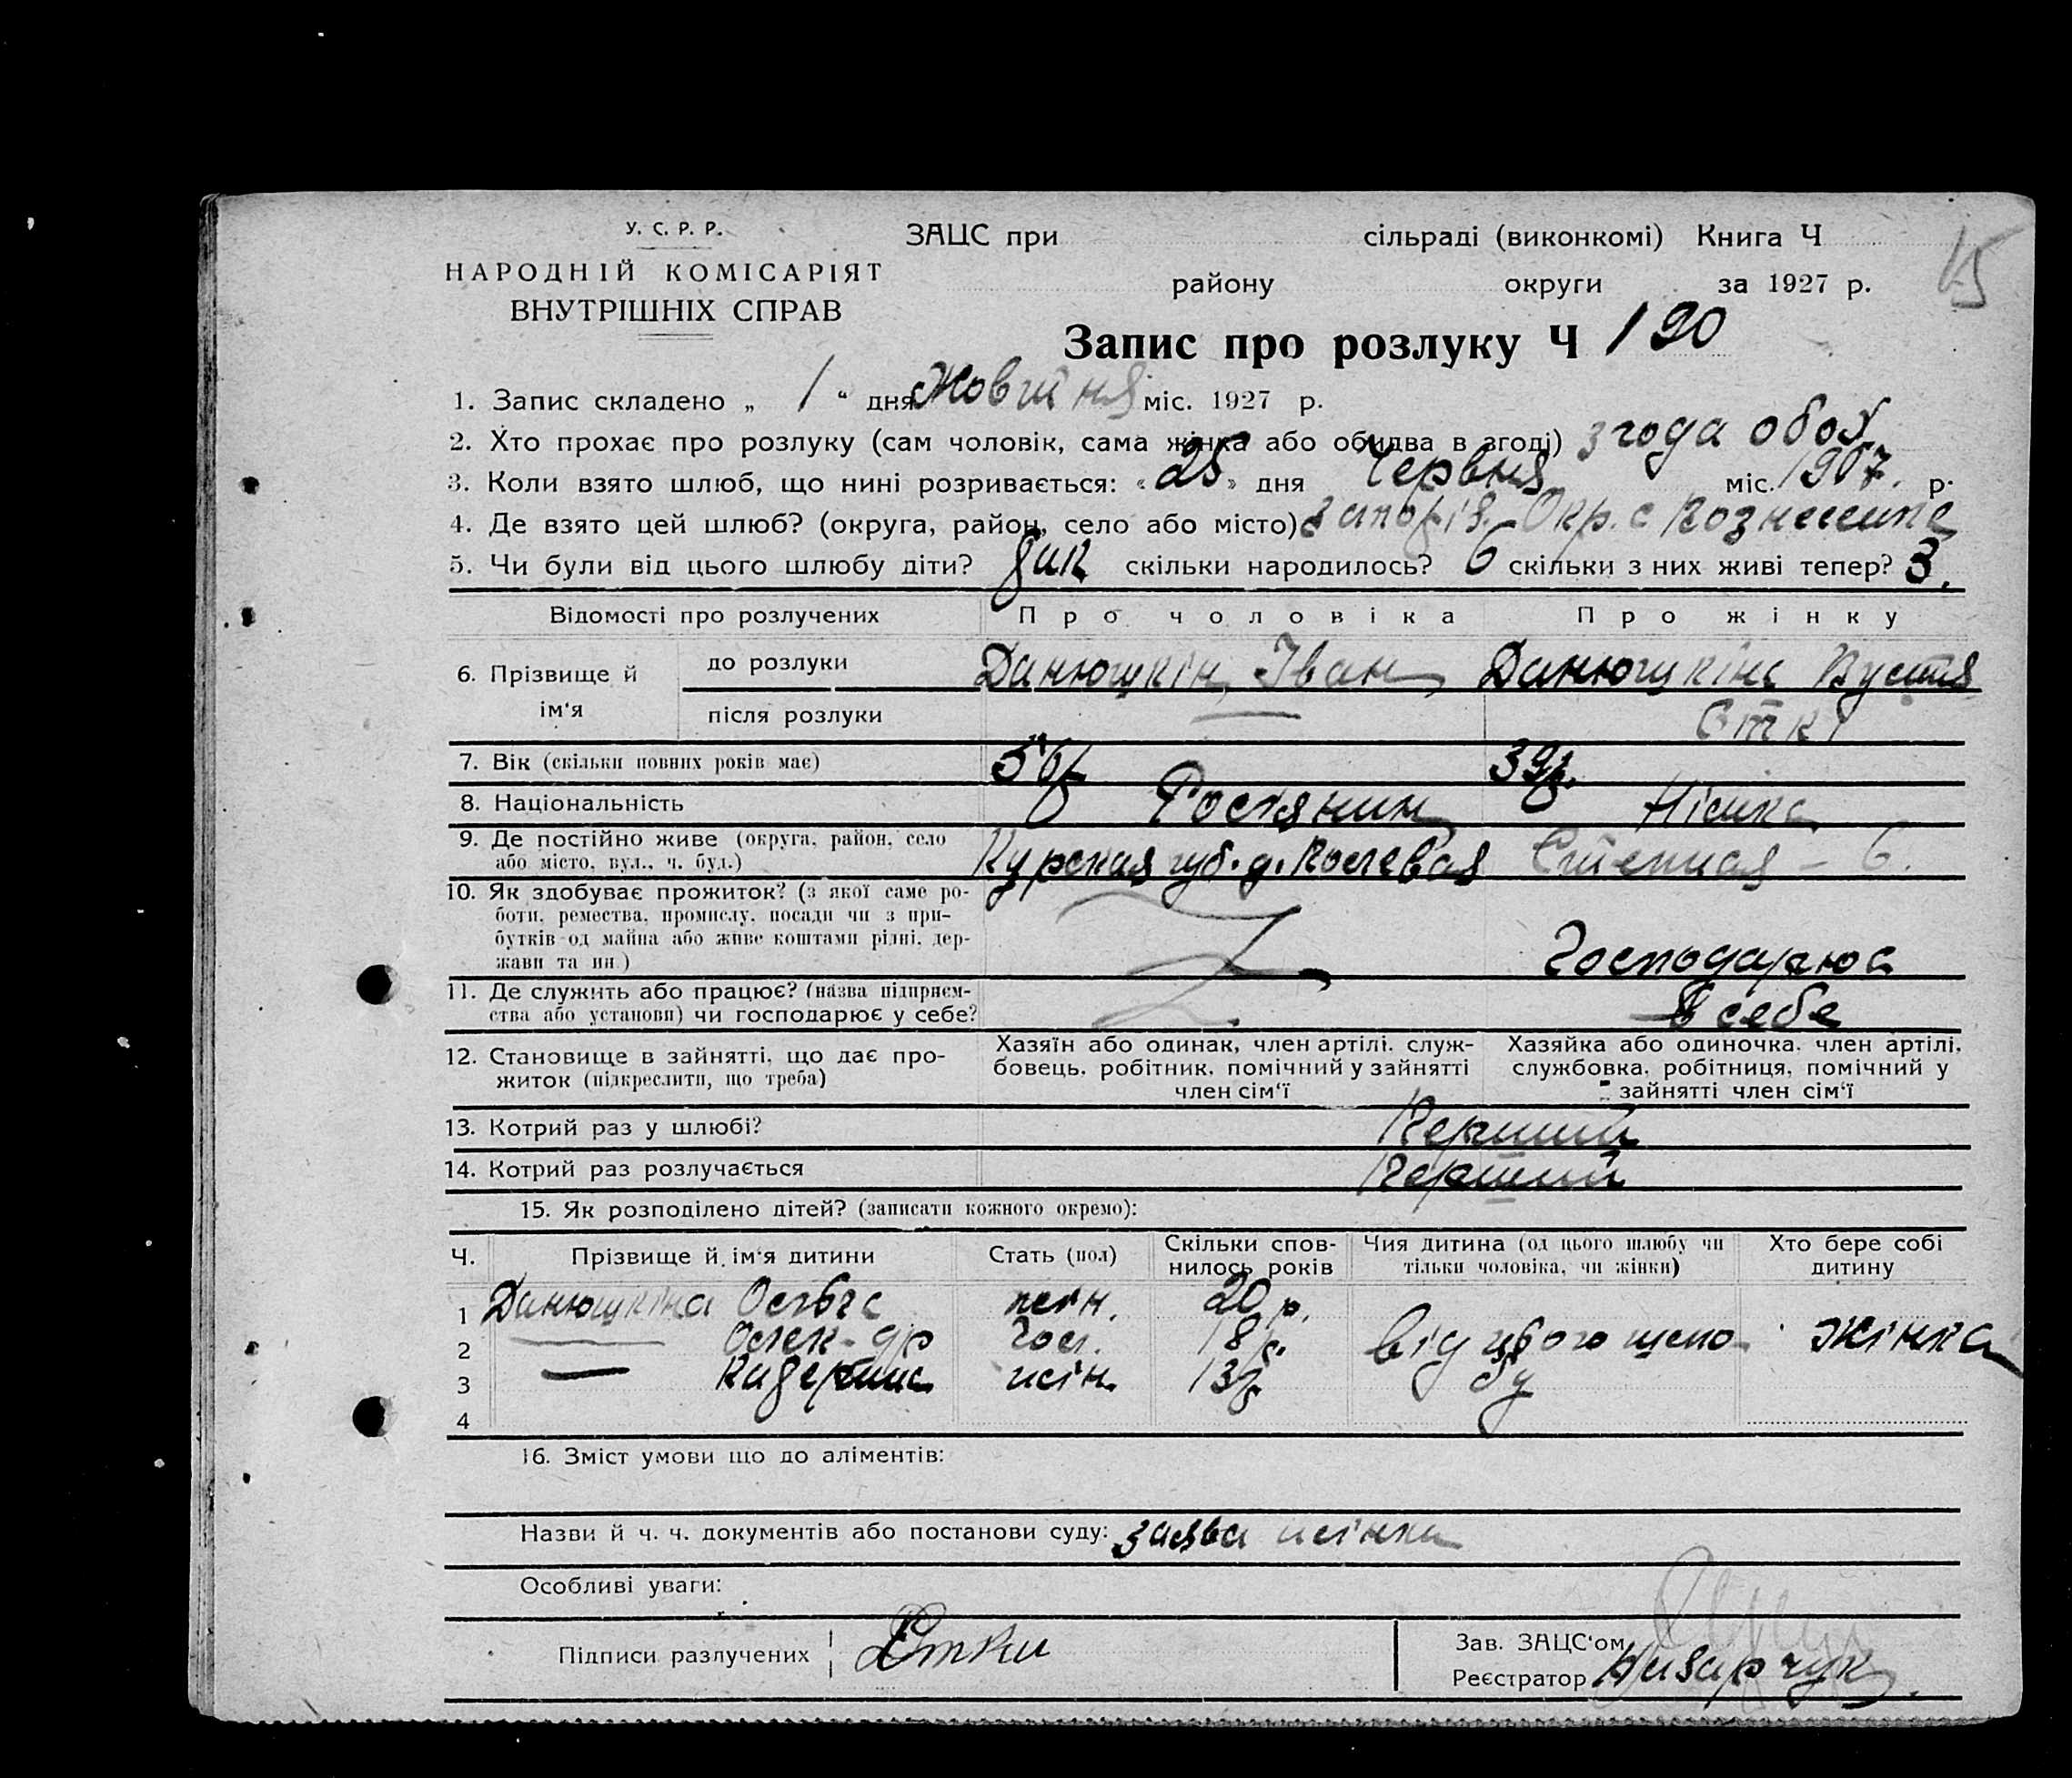 У. С. Р. Р.
НАРОДНІЙ КОМІСАРІЯТ
ВНУТРІШНІХ СПРАВ
ЗАЦС при сільраді (виконкомі) Книга Ч
15
району округи за 1927 р.
Запис про розлуку Ч 190
1. Запис складено „ 1 “ дня Жовтня міс. 1927 р.
2. Хто прохає про розлуку (сам чоловік, сама жінка або обидва в згоді) згода обох
3. Коли взято шлюб, що нині розривається: « 25 » дня Червня міс. 1907. р.
4. Де взято цей шлюб? (округа, район, село або місто) Окр. с
5. Чи були від цього шлюбу діти? скільки народилось? 6 скільки з них живі тепер? 3.
Відомості про розлучених Про чоловіка Про жінку
6. Прізвище й ім‘я
до розлуки Данюшкін Іван Данюшкіна Вустя
після розлуки — Єткі
7. Вік (скільки повних років має) 39р.
8. Національність
9. Де постійно живе (округа, район, село або місто, вул., ч. буд.) Курская губ. д. Степная – 6.
10. Як здобуває прожиток? (з якої саме роботи, ремества, промислу, посади чи з прибутків од майна або живе коштами рідні, держави та ин.) Господарює
11. Де служить або працює? (назва підприємства або установи) чи господарює у себе? В себе
12. Становище в зайнятті, що дає прожиток (підкреслити, що треба)
Хазяїн або одинак, член артілі, службовець, робітник, помічний у зайнятті член сім‘ї
Хазяйка або одиночка, член артілі, службовка, робітниця, помічний у зайнятті член сім‘ї
13. Котрий раз у шлюбі? Перший
14. Котрий раз розлучається Перший
15. Як розподілено дітей? (записати кожного окремо):
Ч. Прізвище й ім‘я дитини Стать (пол) Скільки сповнилось років Чия дитина (од цього шлюбу чи тільки чоловіка, чи жінки) Хто бере собі дитину
1 Данюшкіна жін. 20 р.
2 — 18р. від цього шлю- жінка
3 — жін. 13р. бу
4
16. Зміст умови що до аліментів:
Назви й ч. ч. документів або постанови суду: заява жінки
Особливі уваги:
Підписи разлучених Єтки
Зав. ЗАЦС‘ом
Реєстратор